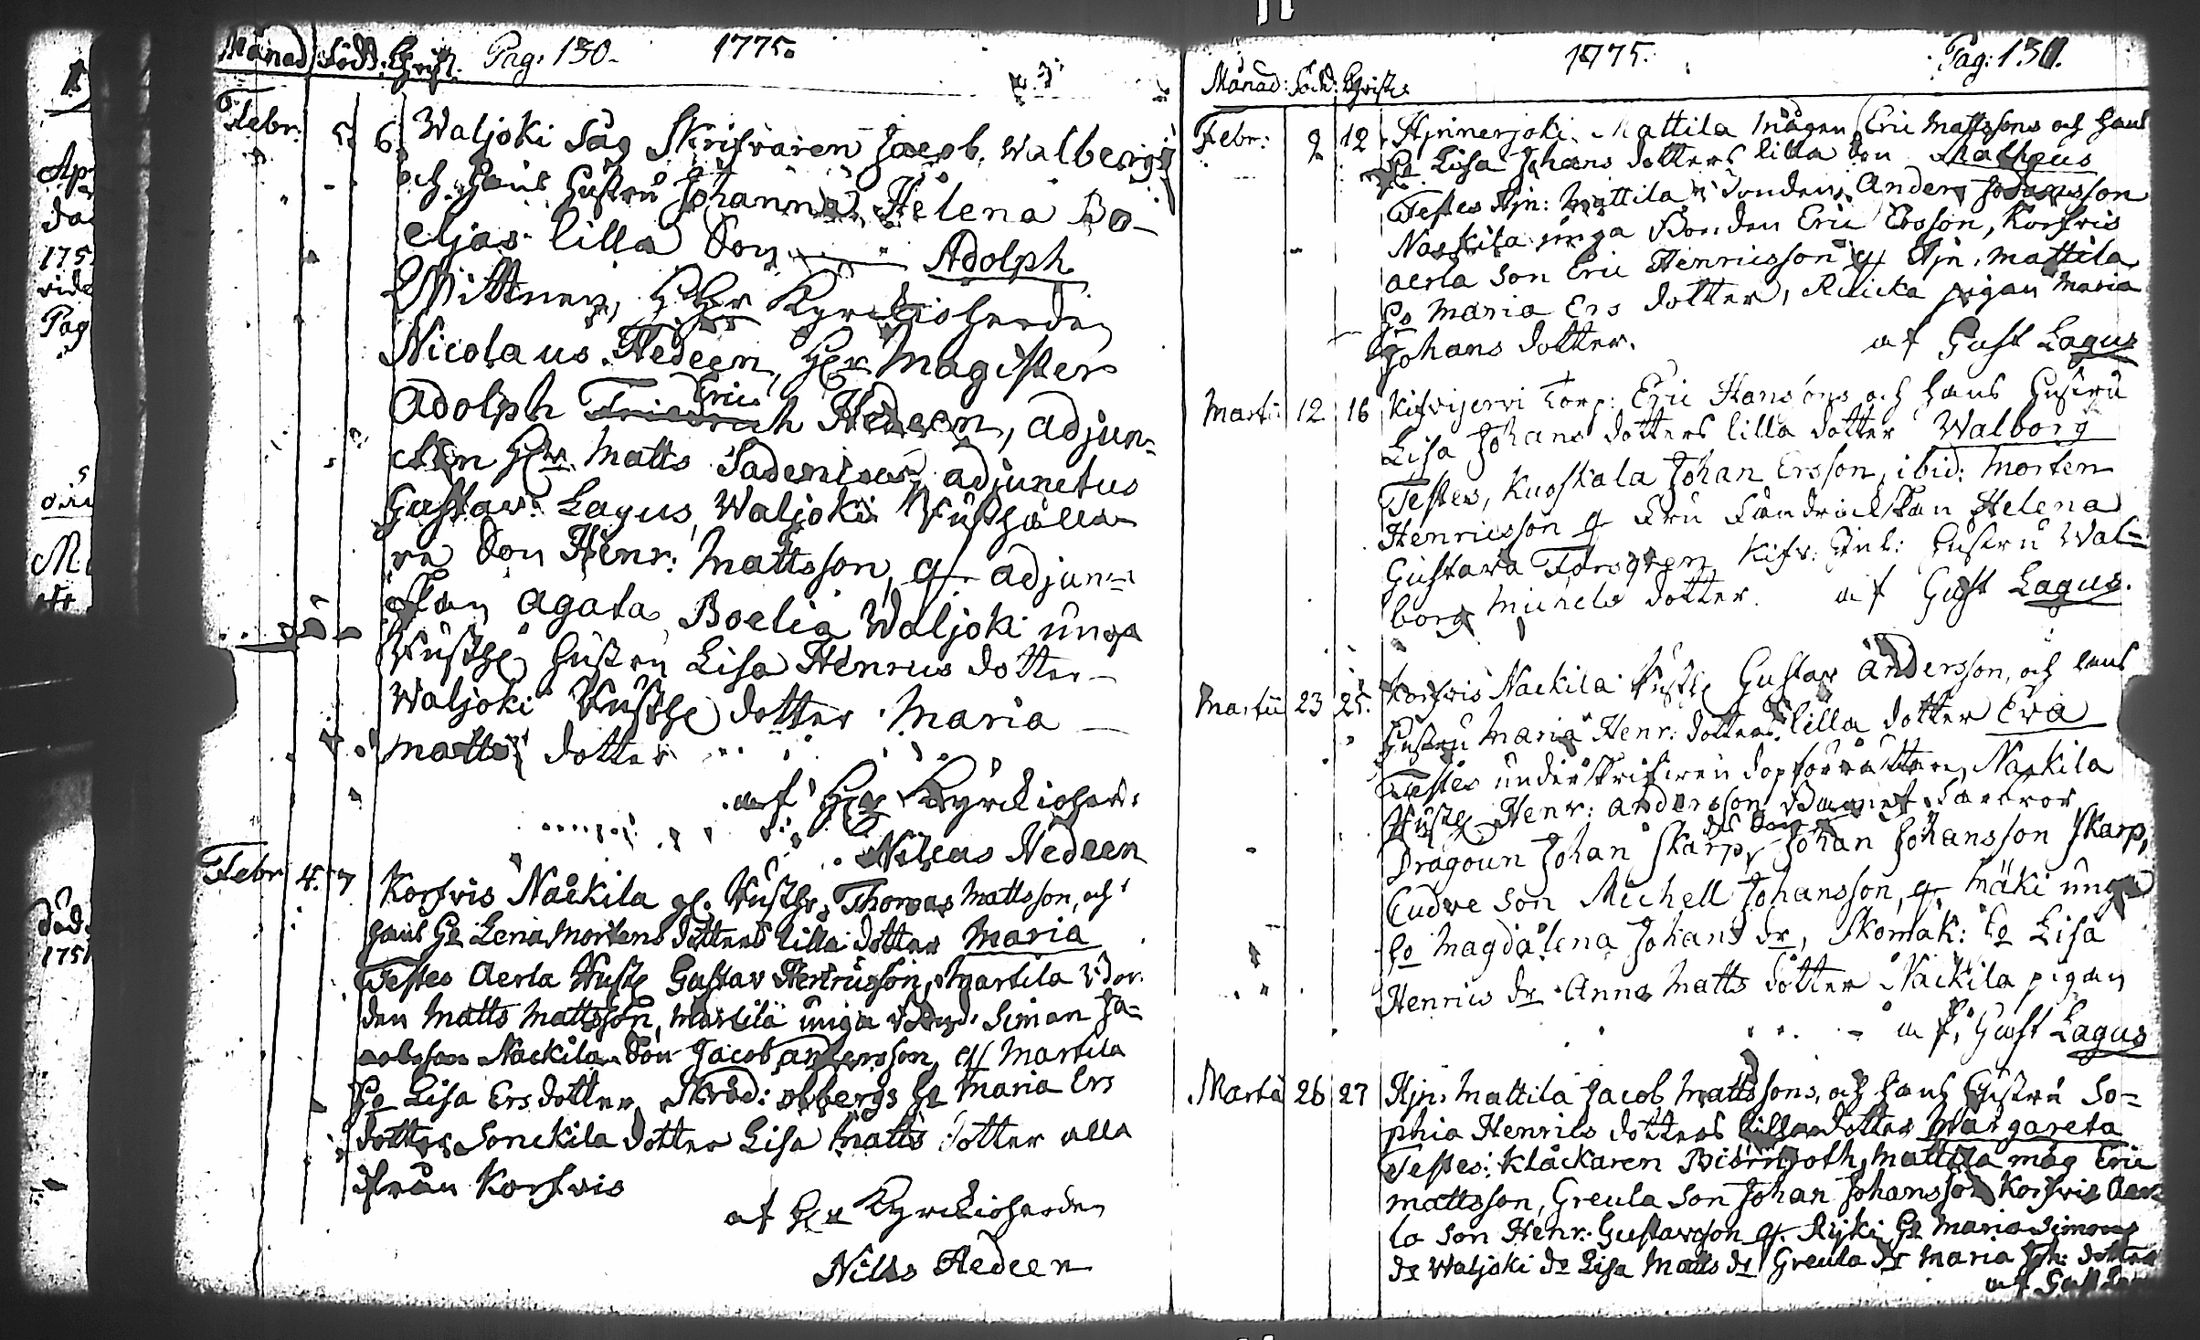 Månad Född. Christ. Pag: 130. 1775.
Febr. 5 6 Waljoki Såg Skrifvaren Jacob Walbergs
och hans hustru Johanna Helena Bo-
eljas lilla Son Adolph
Wittnen, HEr Kyrckioherden
Nicolaus Hedeen, HEr Magister
Adolph Eric Hedeen, adjun-
cten HEr Matts adjunctus
Gustav Lagus, Waljoki Rusthålla-
re Son Henr: Mattsson, och adjun-
ctskan Agata Boelia Waljoki unga
Rusth: hustru Lisa Henrics dotter
Waljoki Rusth: dotter Maria
Matts dotter
af HEr Kyrckioher:
Nicas Hedeen
Febr 4. 7 Korfvis Nackila Rusth: Thomas Mattsson, och
hans Ho Lena Mortens dotters lilla dotter Maria
Testes Aerla Rusth: Gustav Henricsson, Martila Bon-
den Matts Mattsson, Martila unga Bond: Simon Ja-
cobsson Nackila Son Jacob Andersson, och Martila
Ho Lisa Ers dotter, Skräd: Ho Maria Ers
dotter Sonckila dotter Lisa Matts dotter alla
ifrån Korfvis
af HEr Kyrckioherden
Nills Hedeen
1775. Pag: 131.
Månad: Född: Christn:
Febr: 9 12 Hinnerjoki Mattila Mågen Eric Mattssons och hans
Ho Lisa Johans dotters lilla Son Matheus
Testes Hjn: Mattila Bonden Anders Johansson
Naskila unga Bonden Eric Ersson, Korfvis
aerla Son Eric Henricsson och Hjn. Mattila
Ho Maria Ers dotter, pigan Maria
Johans dotter. af Gust Lagus
Martii 12 16 Torp: Eric Hansons och hans hustru
Lisa Johans dotters lilla dotter Walborg
Testes, Kuoskala Johan Ersson, ibid: Morten
Henricsson och Fru Fändrickskan Helena
Gustava Forsgren, hustru Wal-
borg Michels dotter. af Gust Lagus.
Martii 23 25. Korfvis Nackila Rusth: Gustav Andersson, och hans
hustru Maria Henr: dotters lilla dotter Eva
Testes underskrifven dopförrättare, Nackila
Rusth: Henr: Andersson
Dragoun Johan Skarp, Johan Johansson Skarp,
Son Michell Johansson, och Mäki unga
Ho Magdalena Johans dr, Skomak: Ho Lisa
Henrics dr Anna Matts dotter Nackila pigan
af Gust Lagus
Martii 26 27 Hjn: Mattila Jacob Mattssons, och hans hustru So-
phia Henrics dotters lilla dotter Margareta
Testes: Klåckaren Biörnroth, Mattila måg Eric
Mattsson, Greula Son Johan Johansson Korfvis Aer-
la Son Henr: Gustavsson och Rijki Ho Maria Simons
dr Waljoki dr Lisa Matts dr Greula dr Maria Joh: dotter
af Gust